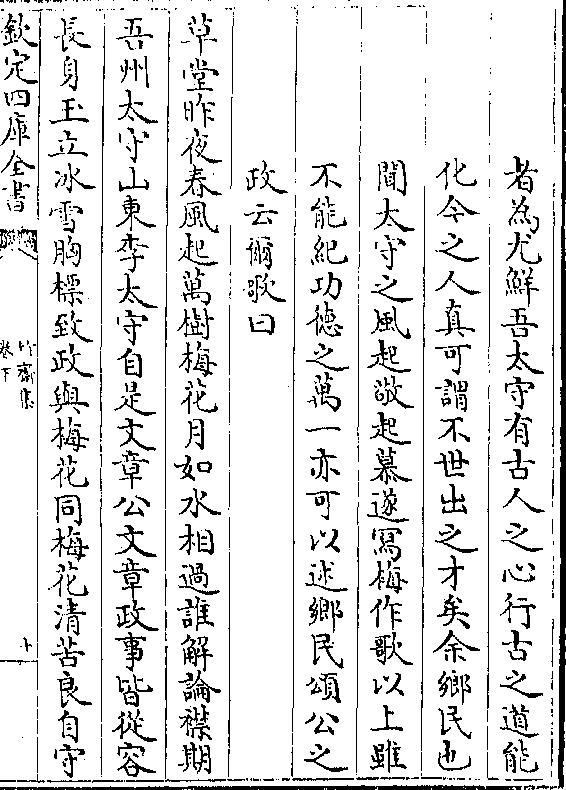 者為尤鮮吾太守有古人之心行古之道能
化今之人真可謂不世出之才矣余鄉民也
聞太守之風起敬起慕遂寫梅作歌以上雖
不能紀功德之萬一亦可以述鄉民頌公之
政云爾歌曰
草堂昨夜春風起萬樹梅花月如水相過誰解論襟期
吾州太守山東李太守自是文章公文章政事皆從容
長身玉立冰雪胸標致政與梅花同梅花清苦良自守
欽定四庫全書
竹齋集
卷下
十